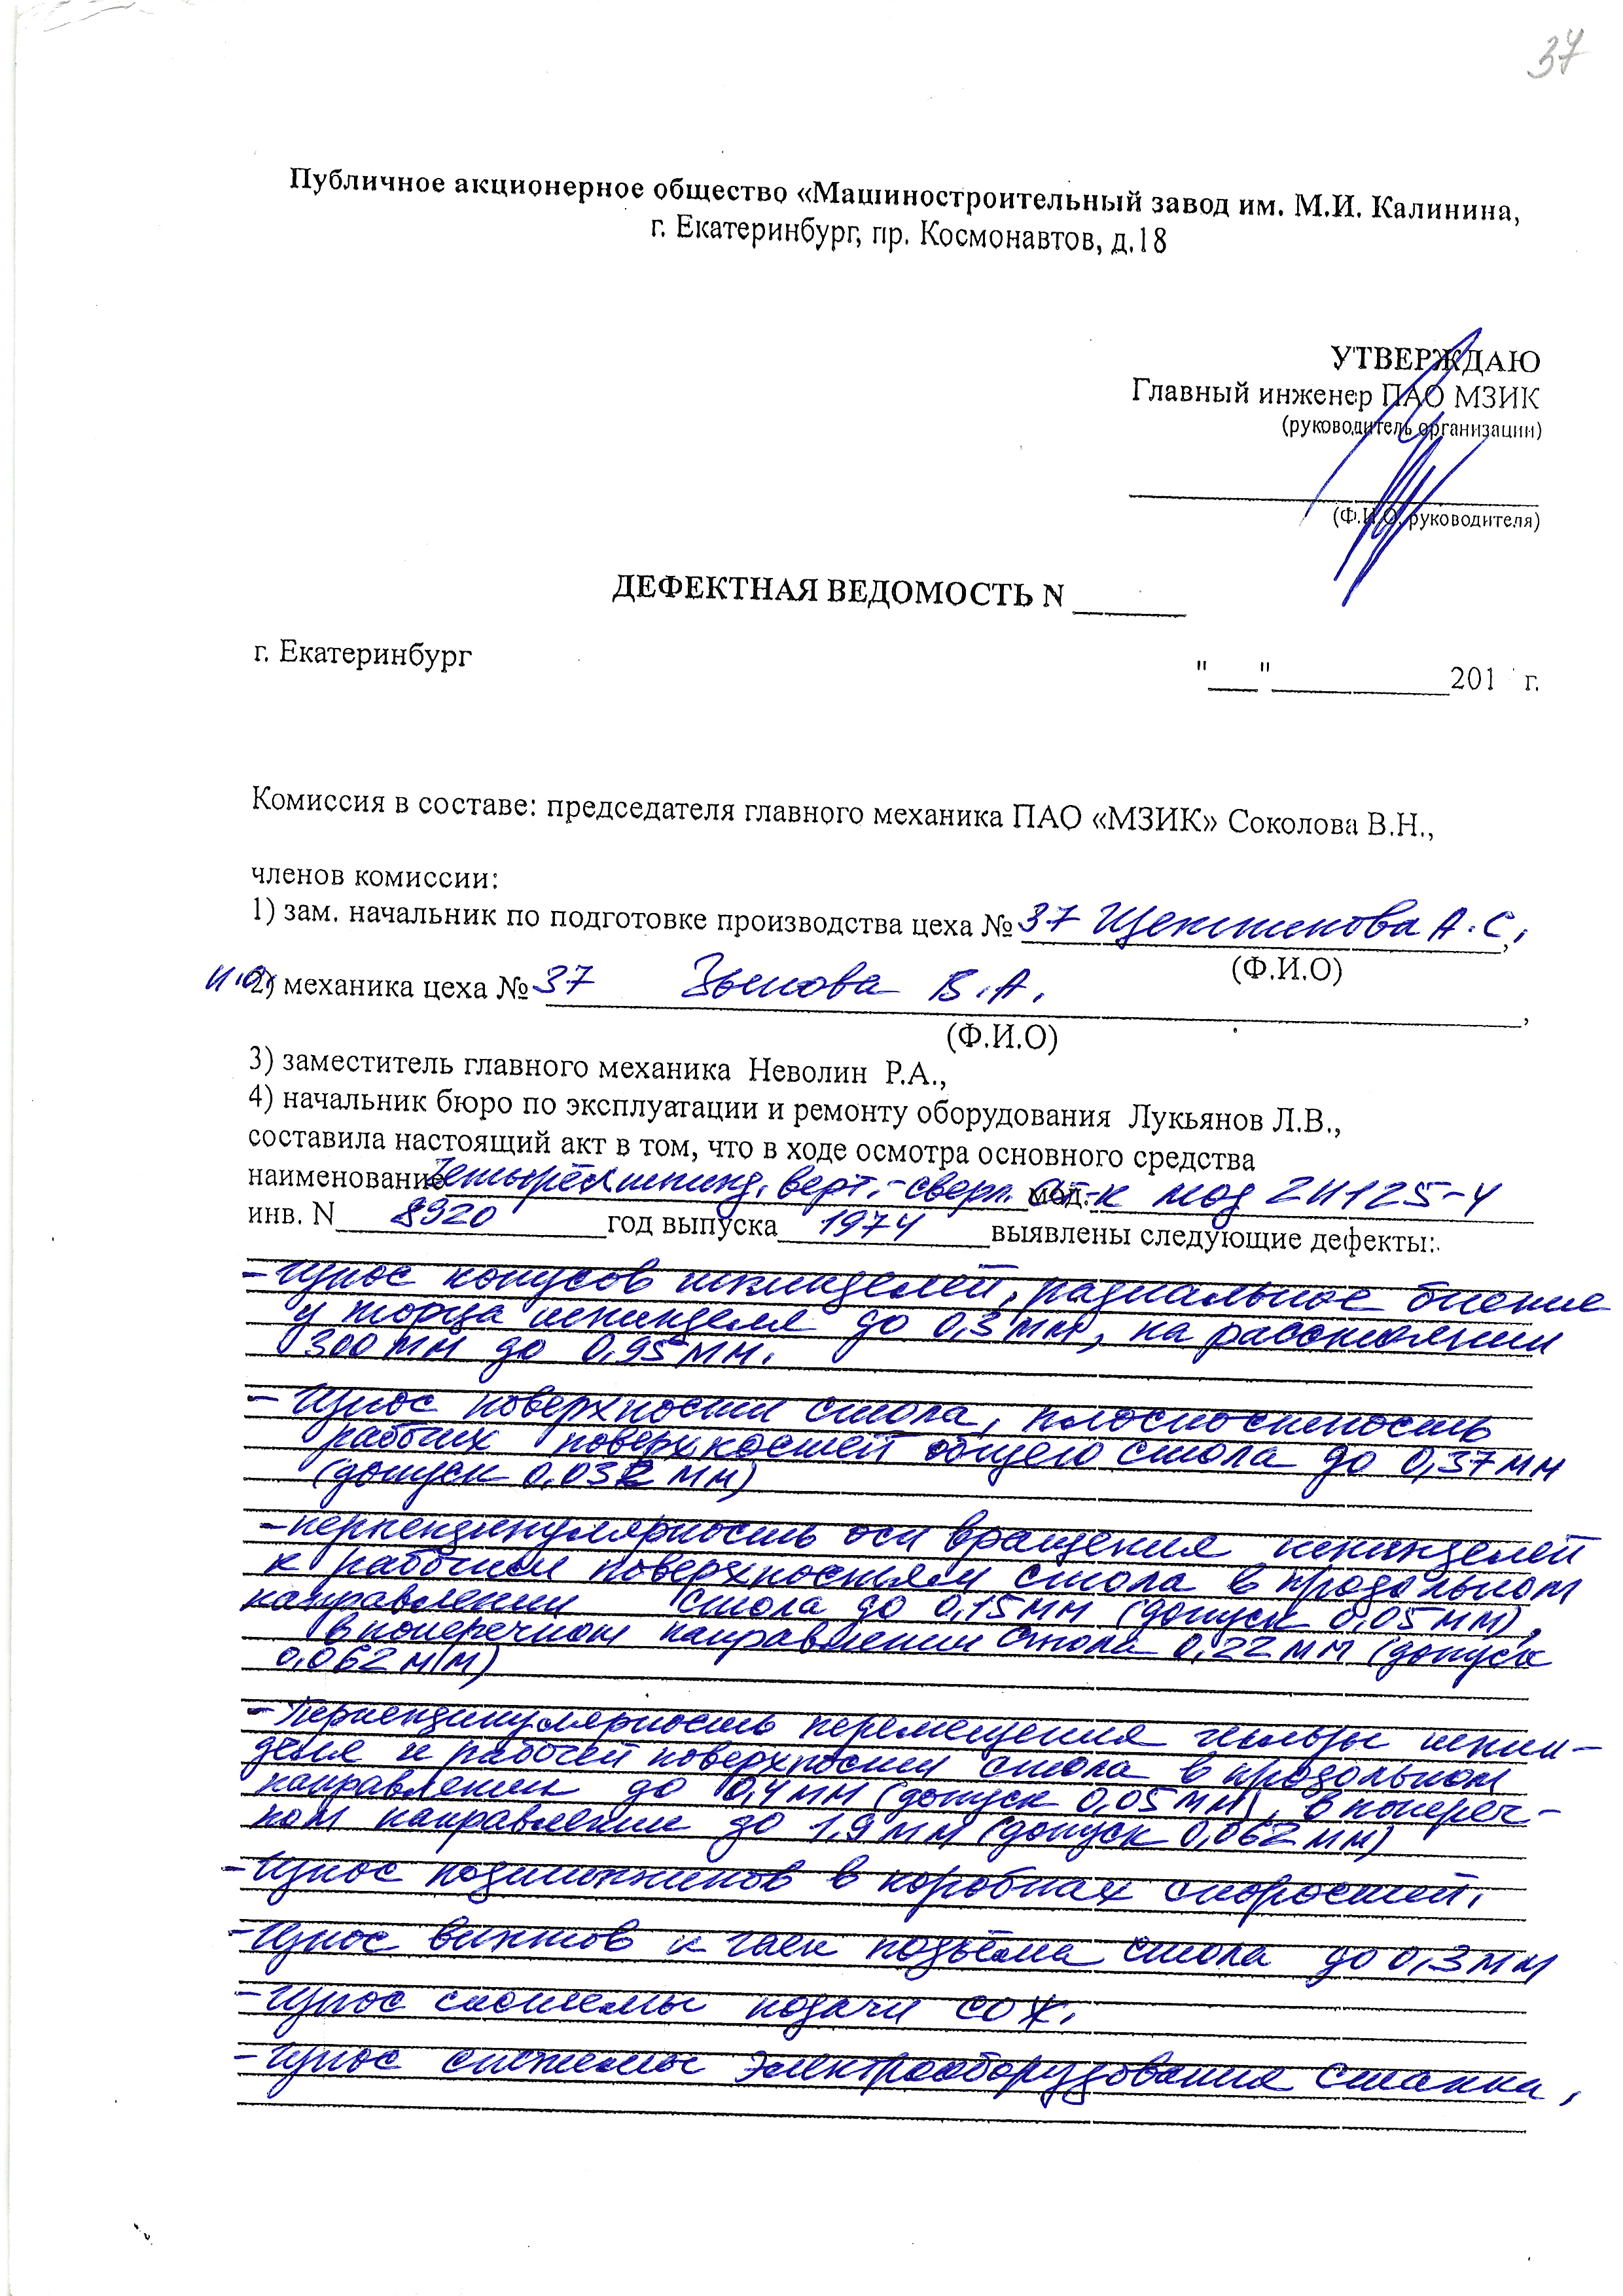 37
Публичное акционерное общество «Машиностроительный завод им. М.И. Калинина,
г. Екатеринбург, пр. Космонавтов, д.18
УТВЕРЖДАЮ
Главный инженер ПАО МЗИК
(руководитель организации)
(Ф.И.О. руководителя)
ДЕФЕКТНАЯ ВЕДОМОСТЬ N ______
г. Екатеринбург "___"___________201 г.
Комиссия в составе: председателя главного механика ПАО «МЗИК» Соколова В.Н.,
членов комиссии:
1) зам. начальник по подготовке производства цеха № 37 А.С.,
(Ф.И.О)
и.о. 2) механика цеха № 37 Зыкова В.А.,
(Ф.И.О)
3) заместитель главного механика Неволин Р.А.,
4) начальник бюро по эксплуатации и ремонту оборудования Лукьянов Л.В.,
составила настоящий акт в том, что в ходе осмотра основного средства
наименование Четырёхшпинд. верт.-сверл. ст-к мод. мод 2Н125-4
инв. N 8920 год выпуска 1974 выявлены следующие дефекты:
- Износ конусов шпинделей, радиальное биение
у торца шпинделя до 0,3 мм, на расстоянии
300 мм до 0,95 мм.
- Износ поверхности стола, плоскостность
рабочих поверхностей общего стола до 0,37 мм
(допуск 0,032 мм)
- перпендикулярность оси вращения шпинделей
к рабочим поверхностям стола в продольном
направлении стола до 0,15 мм (допуск 0,05 мм),
в поперечном направлении стола 0,22 мм (допуск
0,062 мм)
- Перпендикулярность перемещения гильзы шпин-
деля к рабочей поверхности стола в продольном
направлении до 0,4 мм (допуск 0,05 мм), в попереч-
ном направлении до 1,9 мм (допуск 0,062 мм)
- Износ подшипников в коробках скоростей.
- Износ винтов и гаек подъёма стола до 0,3 мм
- Износ системы подачи СОЖ.
- Износ системы электрооборудования станка,